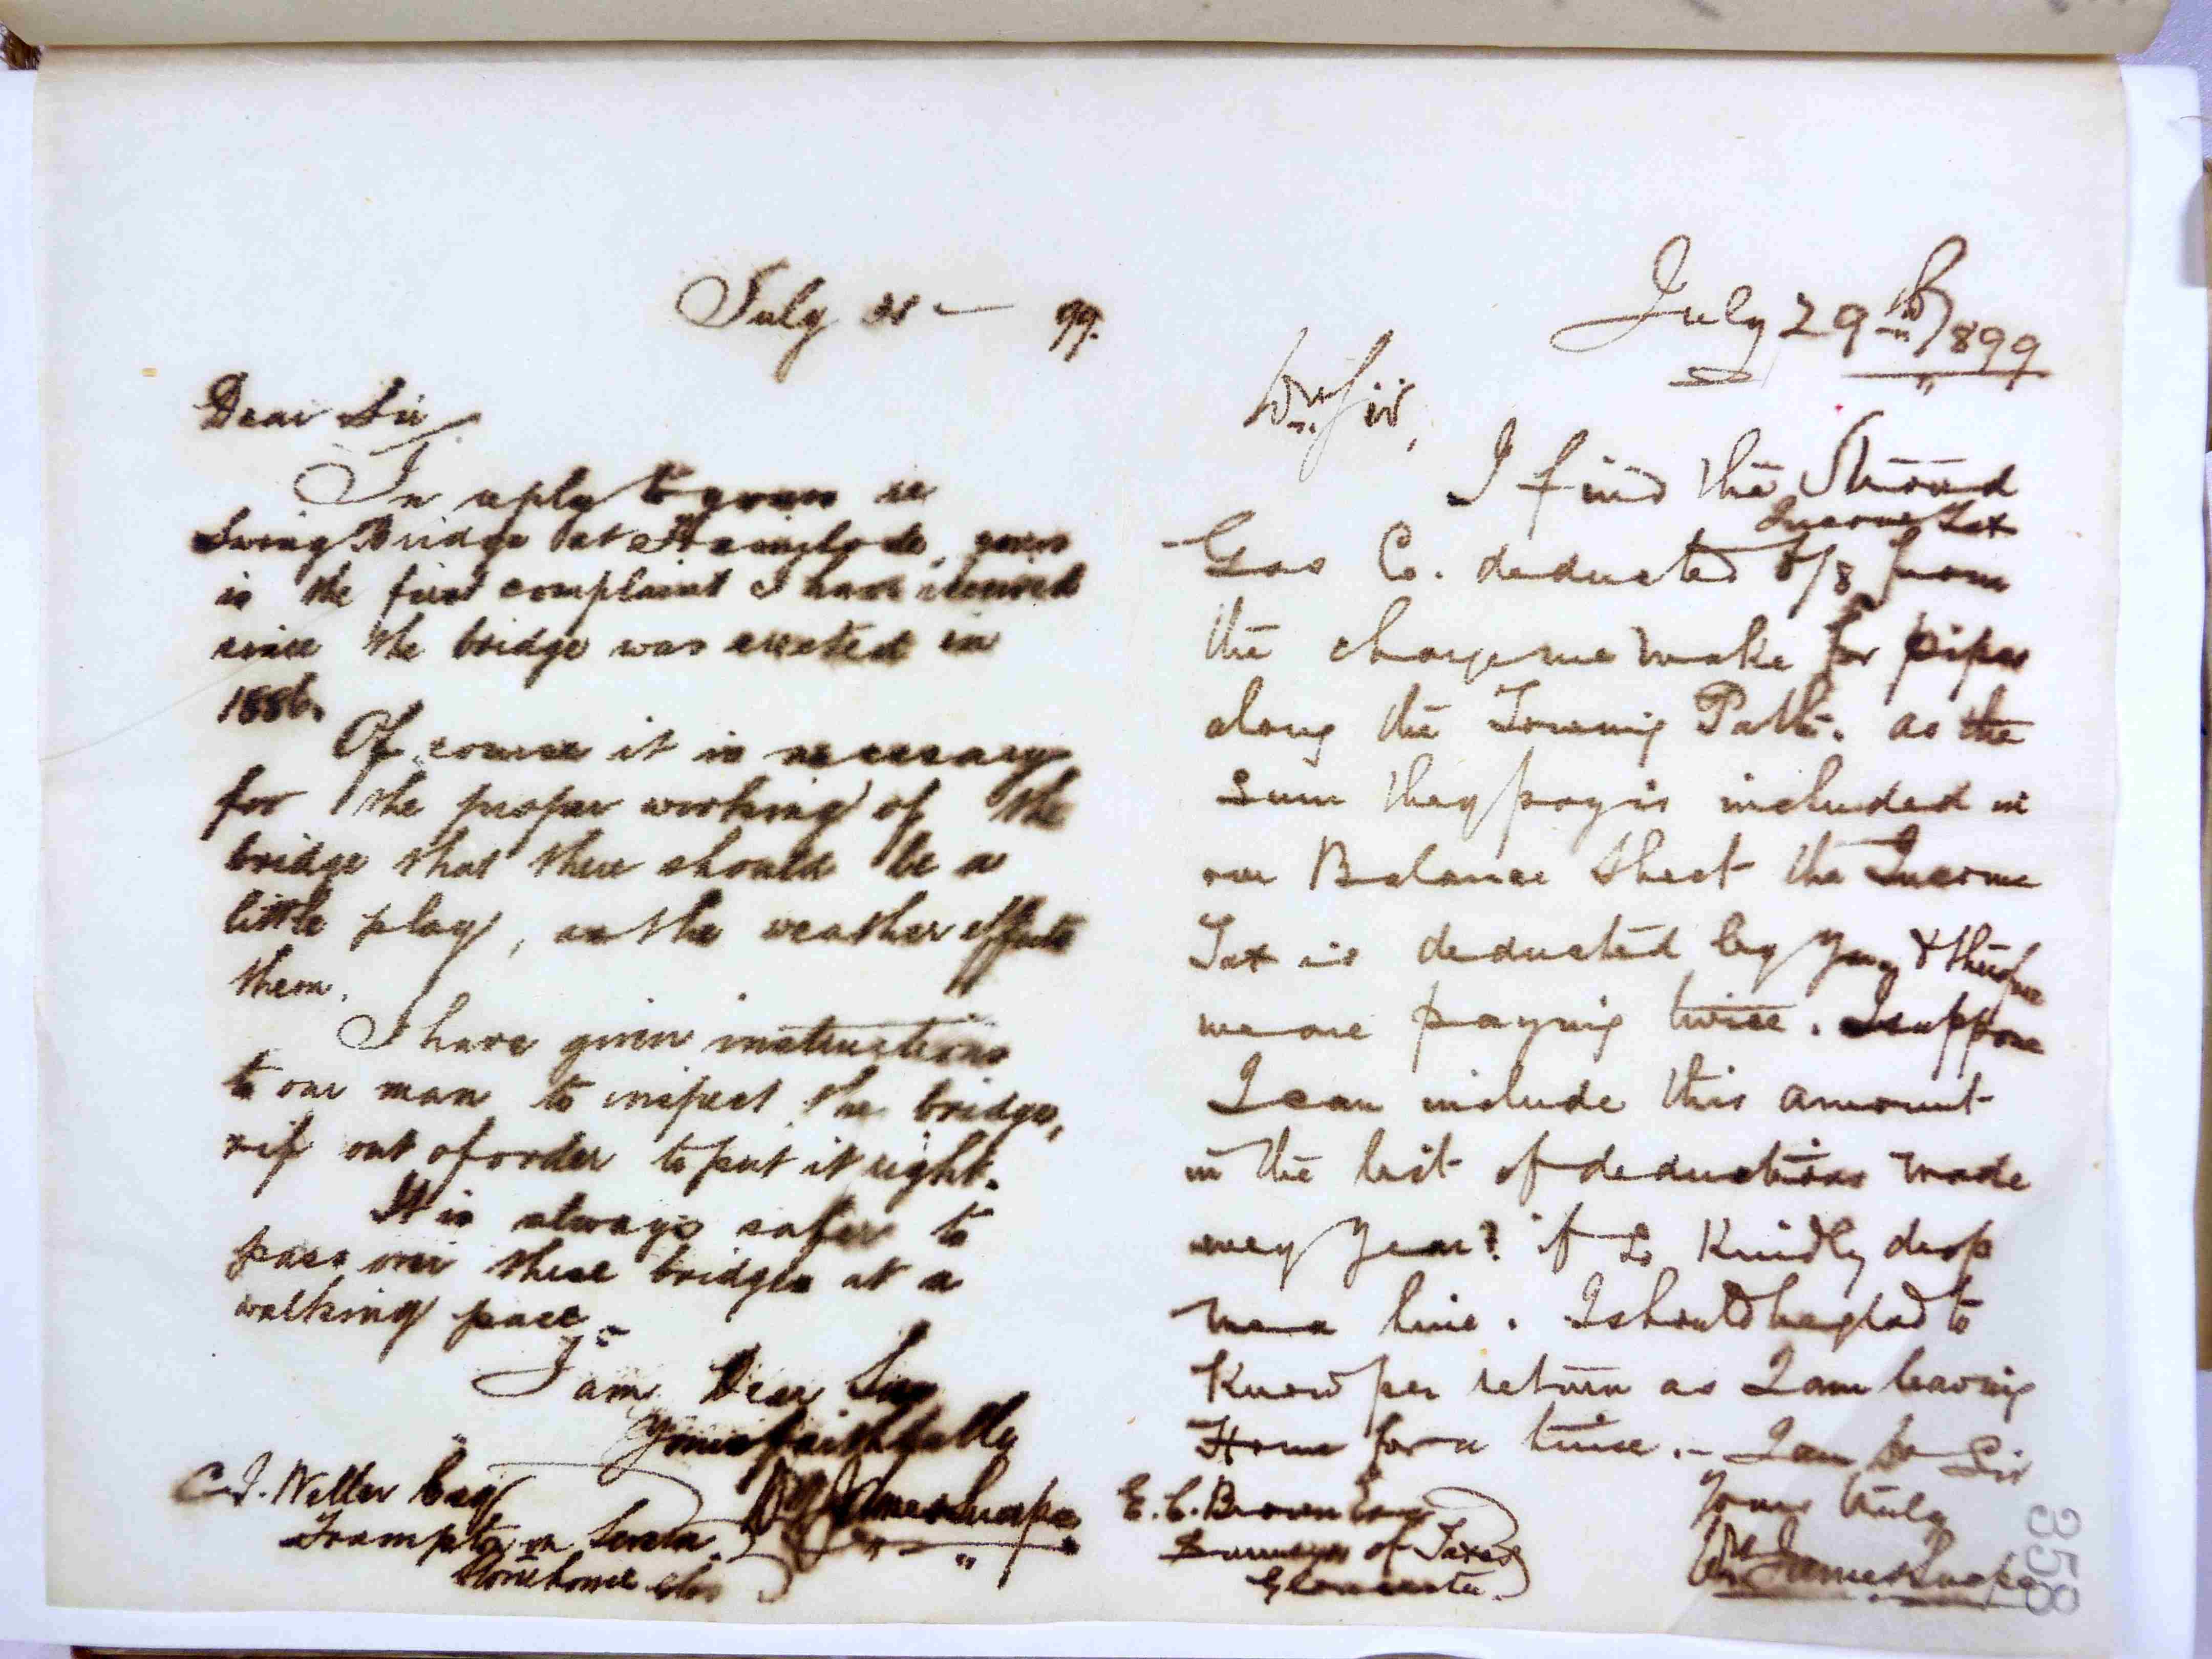 July 31 — 99.
Dear Sir
In reply to yours re
Swing Bridge at Framilode, yours
is the first complaint I have received
since the bridge was erected in
1886.
Of course it is necessary
for the proper working of the
bridge that there should be a
little play, as the weather effects
them.
I have given instructions
to our man to inspect the bridge,
& if out of order to put it right.
It is always safer to
pass over these bridges at a
walking pace.
I am Dear Sir
Yours faithfully
Wm James Snape
C. J. Weller Esq
Frampton on Severn
Stonehouse Glos
July 29th 1899
Dr Sir,
I find the Stroud
Income Tax
Gas Co. deducted 6/8 from
the charge we make for pipes
along the Towing Path. as the
sum they pay is included in
our Balance Sheet the Income
Tax is deducted by you & therefore
we are paying twice. I suppose
I can include this amount
in the list of deductions made
every year? if so Kindly drop
me a line. I should be glad to
Know per return as I am leaving
Home for a time. — I am Dr Sir
Yours truly
Wm James Snape
E. C. Brown Esq
Surveyor of Taxes
Gloucester.
358